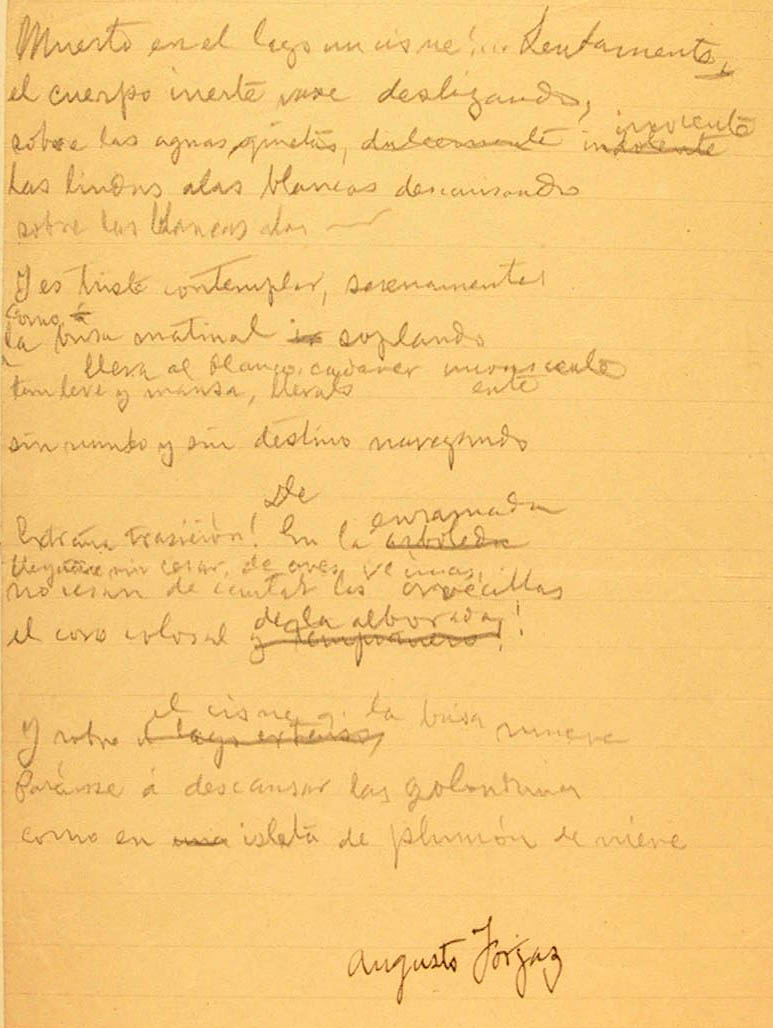 Muerto en el lago un cisne!... Lentamente,
el cuerpo inerte vase deslizando,
inocente
sobre las aguas quietas, dulcemente indolente
las lindas alas blancas descansando
sobre las blancas alas
Y es triste contemplar, serenamente
como á
la brisa matinal ir soplando
lleva al blanco cadaver inconsciente
tan leve y mansa, llevalo ente
sin rumbo y sin destino navegando
De
enramada
Extraña trasición! En la arboleda
sin cesar, de aves
no cesan de cantar las avecillas
de la alborada!
el coro colosal y tempranero!
el cisne q. la brisa mueve
Y sobre el lago extenso,
Paránse á descansar las golondrinas
como en una isleta de plumón de nieve
Augusto Forjaz